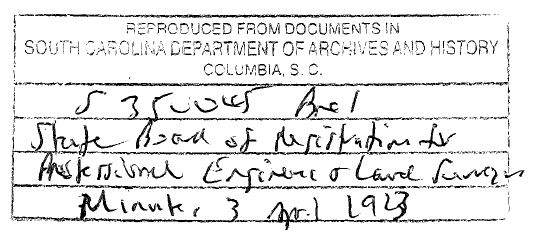 REPRODUCED FROM DOCUMENTS IN
SOUTH CAROLINA DEPARTMENT OF ARCHIVES AND HISTORY
COLUMBIA, S. C.
S 350045 Box 1
State Board of Registration for
Professional Engineers & Land Surveyors
Minutes 3 April 1923